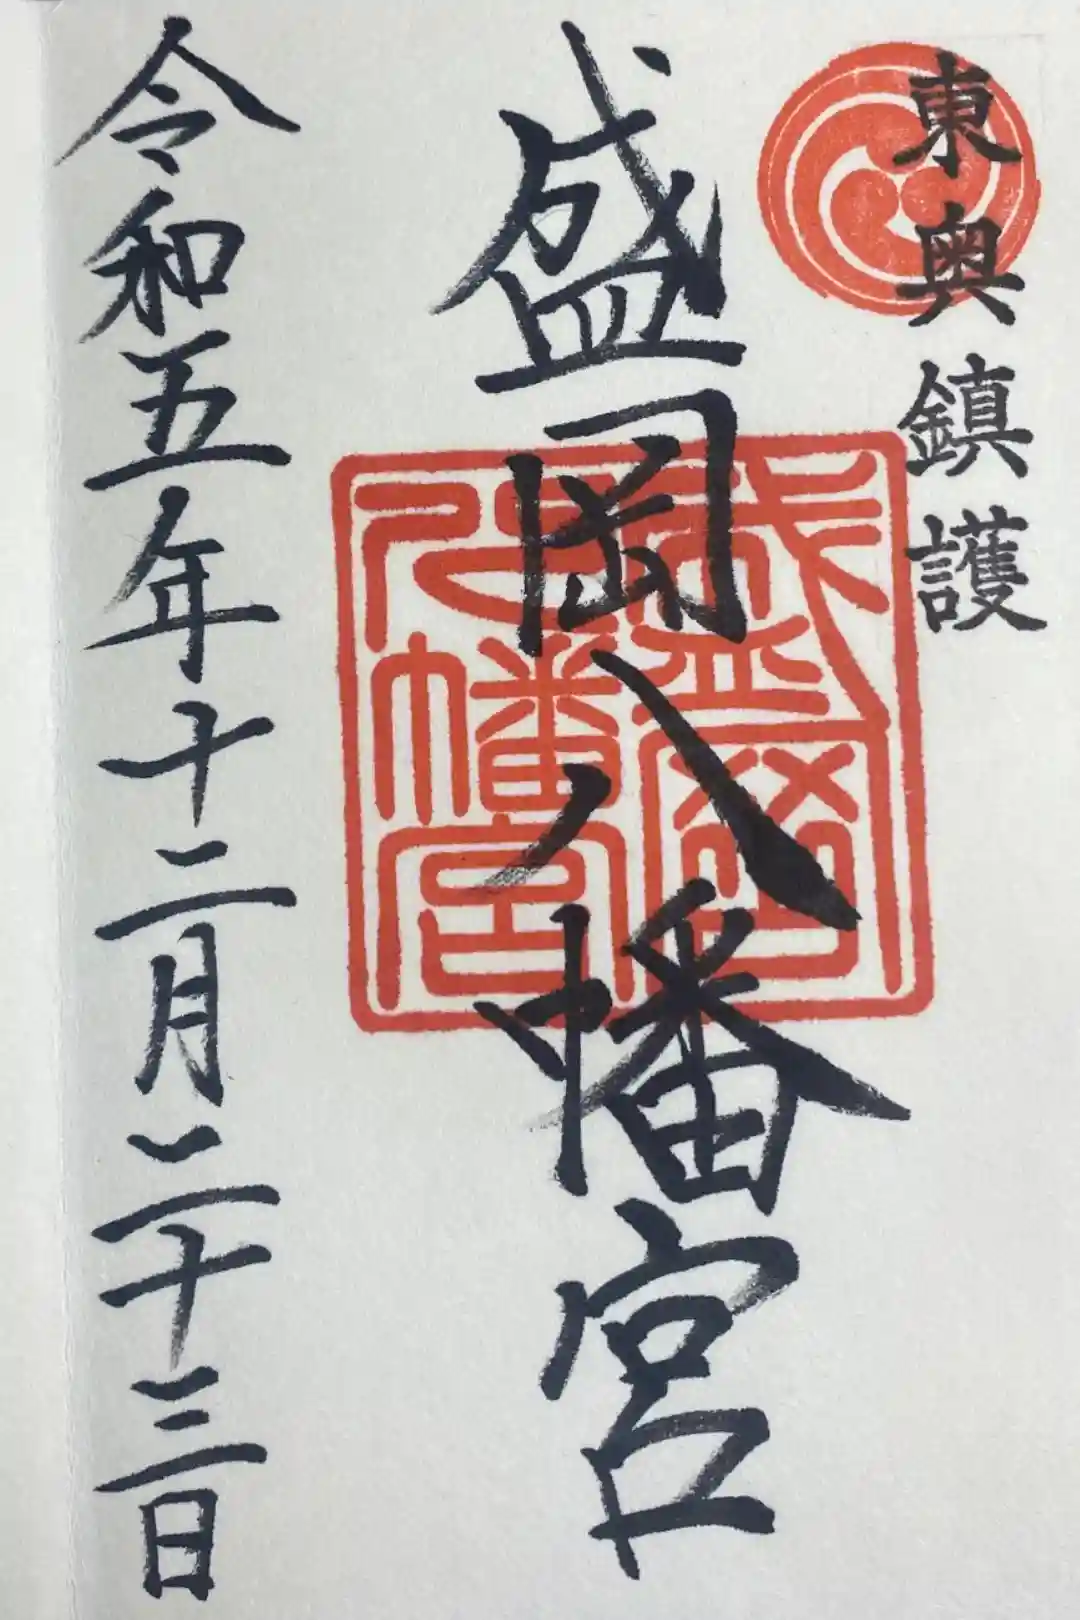 東奥鎮護
盛岡八幡宮
盛岡八幡宮
令和五年十二月二十三日